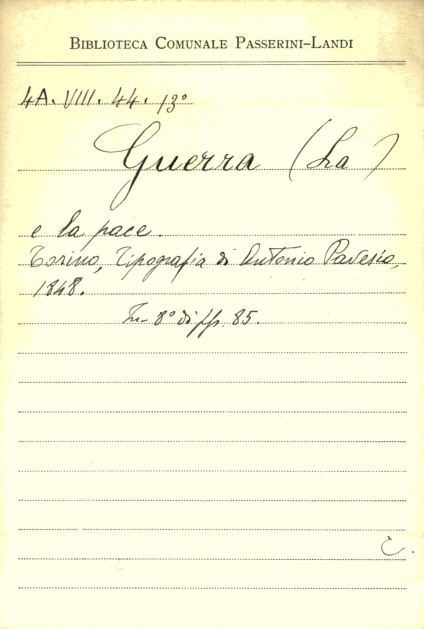 BIBLIOTECA COMUNALE PASSERINI-LANDI
4A. VIII. 44. 13°
Guerra (La)
e la pace.
Torino, Tipografia di Antonio Pavesio,
1848.
In-8° di pp. 85.
C.